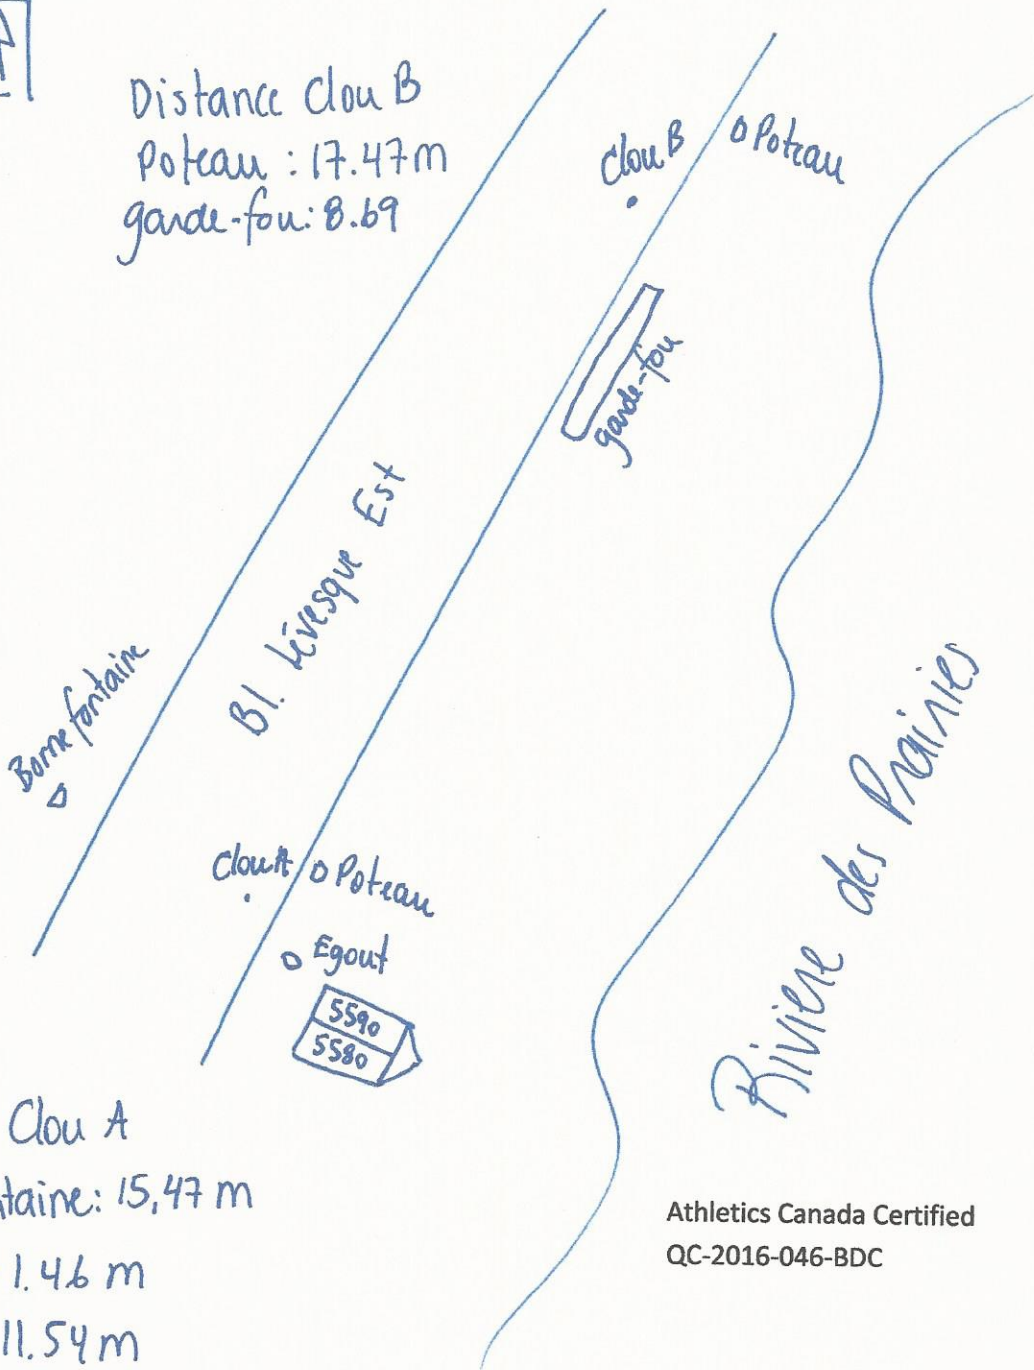 Distance Clou B
Poteau : 17.47m
garde-fou: 8.69
Clou B
Poteau
garde-fou
Bl. Lévesque Est
Borne fontaine
Clou A
Poteau
Egout
5590
5580
Rivière des Prairies
Clou A
taine: 15,47 m
1.46 m
11.54 m
Athletics Canada Certified
QC-2016-046-BDC